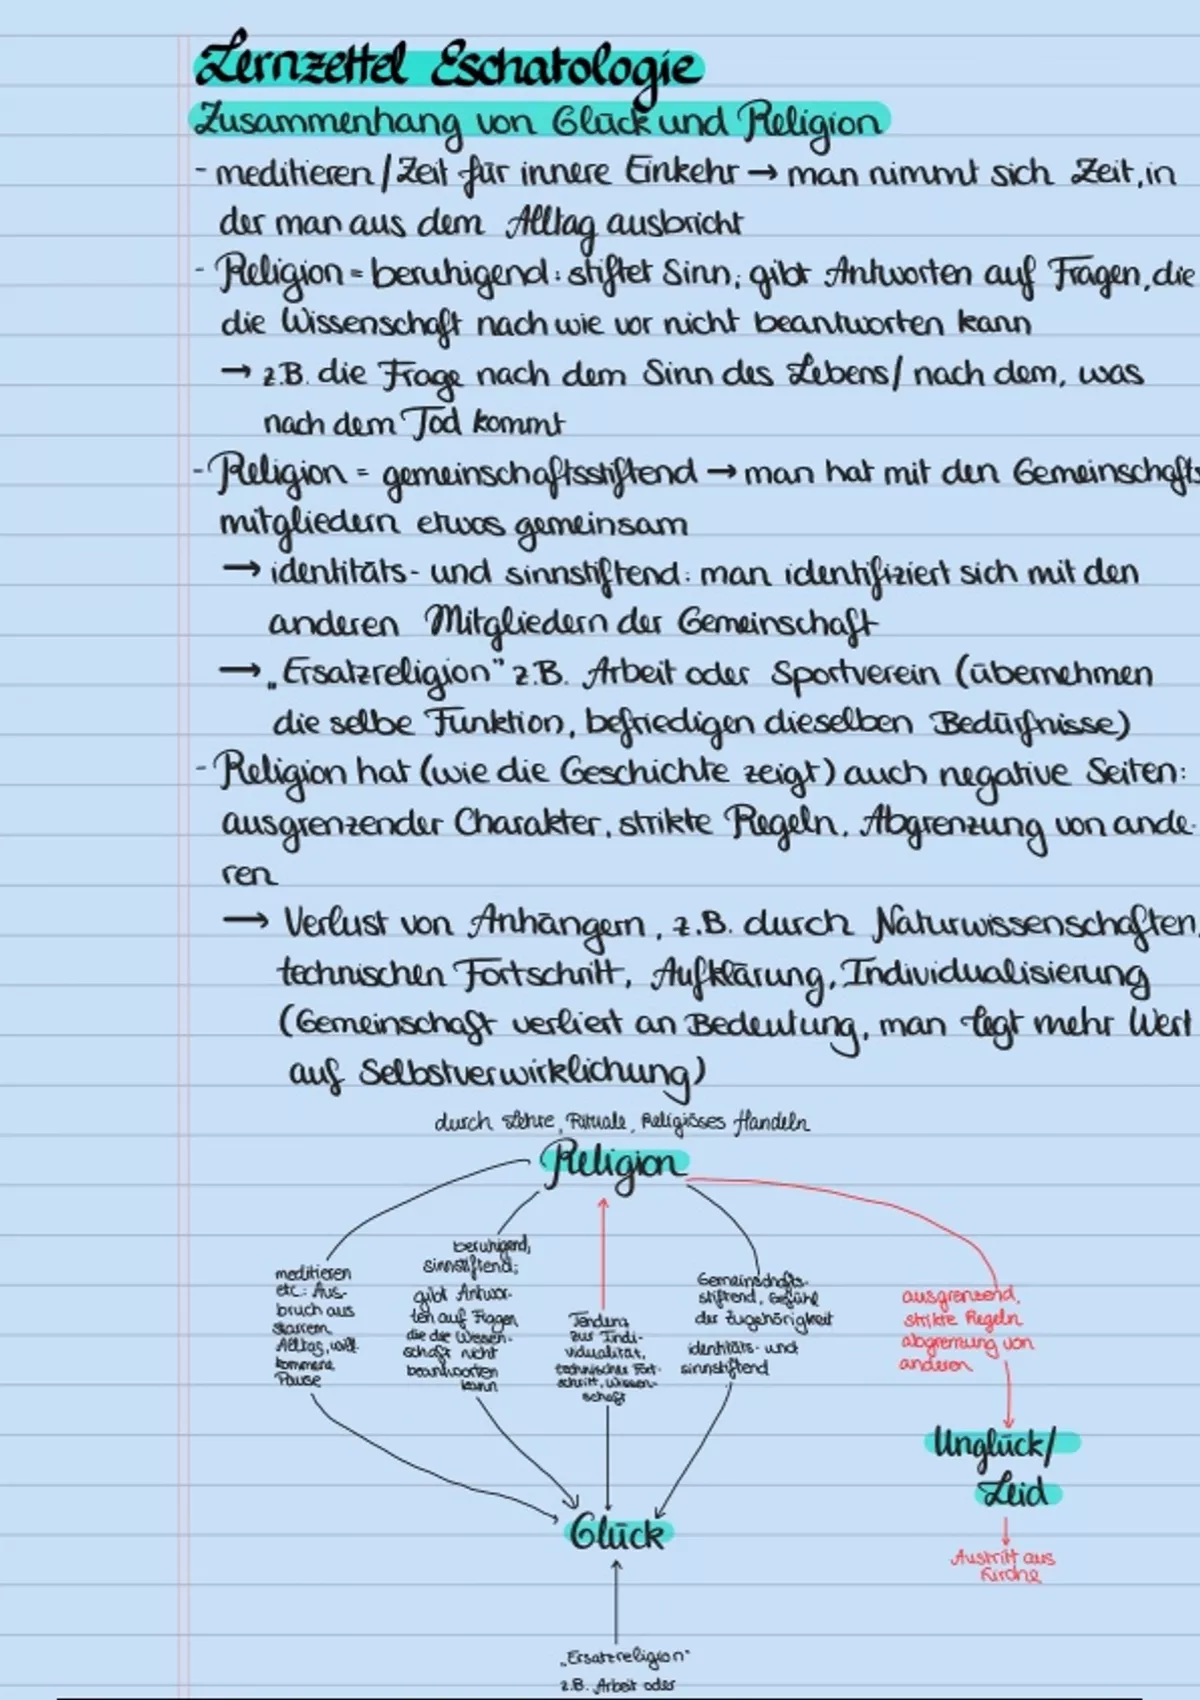 Lernzettel Eschatologie
Zusammenhang von Glück und Religion
- meditieren / Zeit für innere Einkehr → man nimmt sich Zeit, in
der man aus dem Alltag ausbricht
- Religion = beruhigend: stiftet Sinn; gibt Antworten auf Fragen, die
die Wissenschaft nach wie vor nicht beantworten kann
→ z.B. die Frage nach dem Sinn des Lebens/ nach dem, was
nach dem Tod kommt
- Religion = gemeinschaftsstiftend → man hat mit den Gemeinschafts
mitgliedern etwas gemeinsam
→ identitäts- und sinnstiftend: man identifiziert sich mit den
anderen Mitgliedern der Gemeinschaft
→ „Ersatzreligion" z.B. Arbeit oder Sportverein (übernehmen
die selbe Funktion, befriedigen dieselben Bedürfnisse)
- Religion hat (wie die Geschichte zeigt) auch negative Seiten:
ausgrenzender Charakter, strikte Regeln, Abgrenzung von ande-
ren
→ Verlust von Anhängern, z.B. durch Naturwissenschaften,
technischen Fortschritt, Aufklärung, Individualisierung
(Gemeinschaft verliert an Bedeutung, man legt mehr Wert
auf Selbstverwirklichung)
durch Lehre, Rituale, Religiöses Handeln
Religion
meditieren
etc.: Aus-
bruch aus
starrem
Alltag, will-
kommene
Pause
beruhigend,
sinnstiftend;
gibt Antwor-
ten auf Fragen
die die Wissen-
schaft nicht
beantworten
kann
Tendenz
zur Indi-
vidualität,
technischer Fort-
schritt, Wissen-
schaft
Gemeinschafts-
stiftend, Gefühl
der Zugehörigkeit
identitäts- und
sinnstiftend
ausgrenzend,
strikte Regeln
abgrenzung von
anderen
Unglück/
Leid
Austritt aus
Kirche
Glück
„Ersatzreligion"
z.B. Arbeit oder